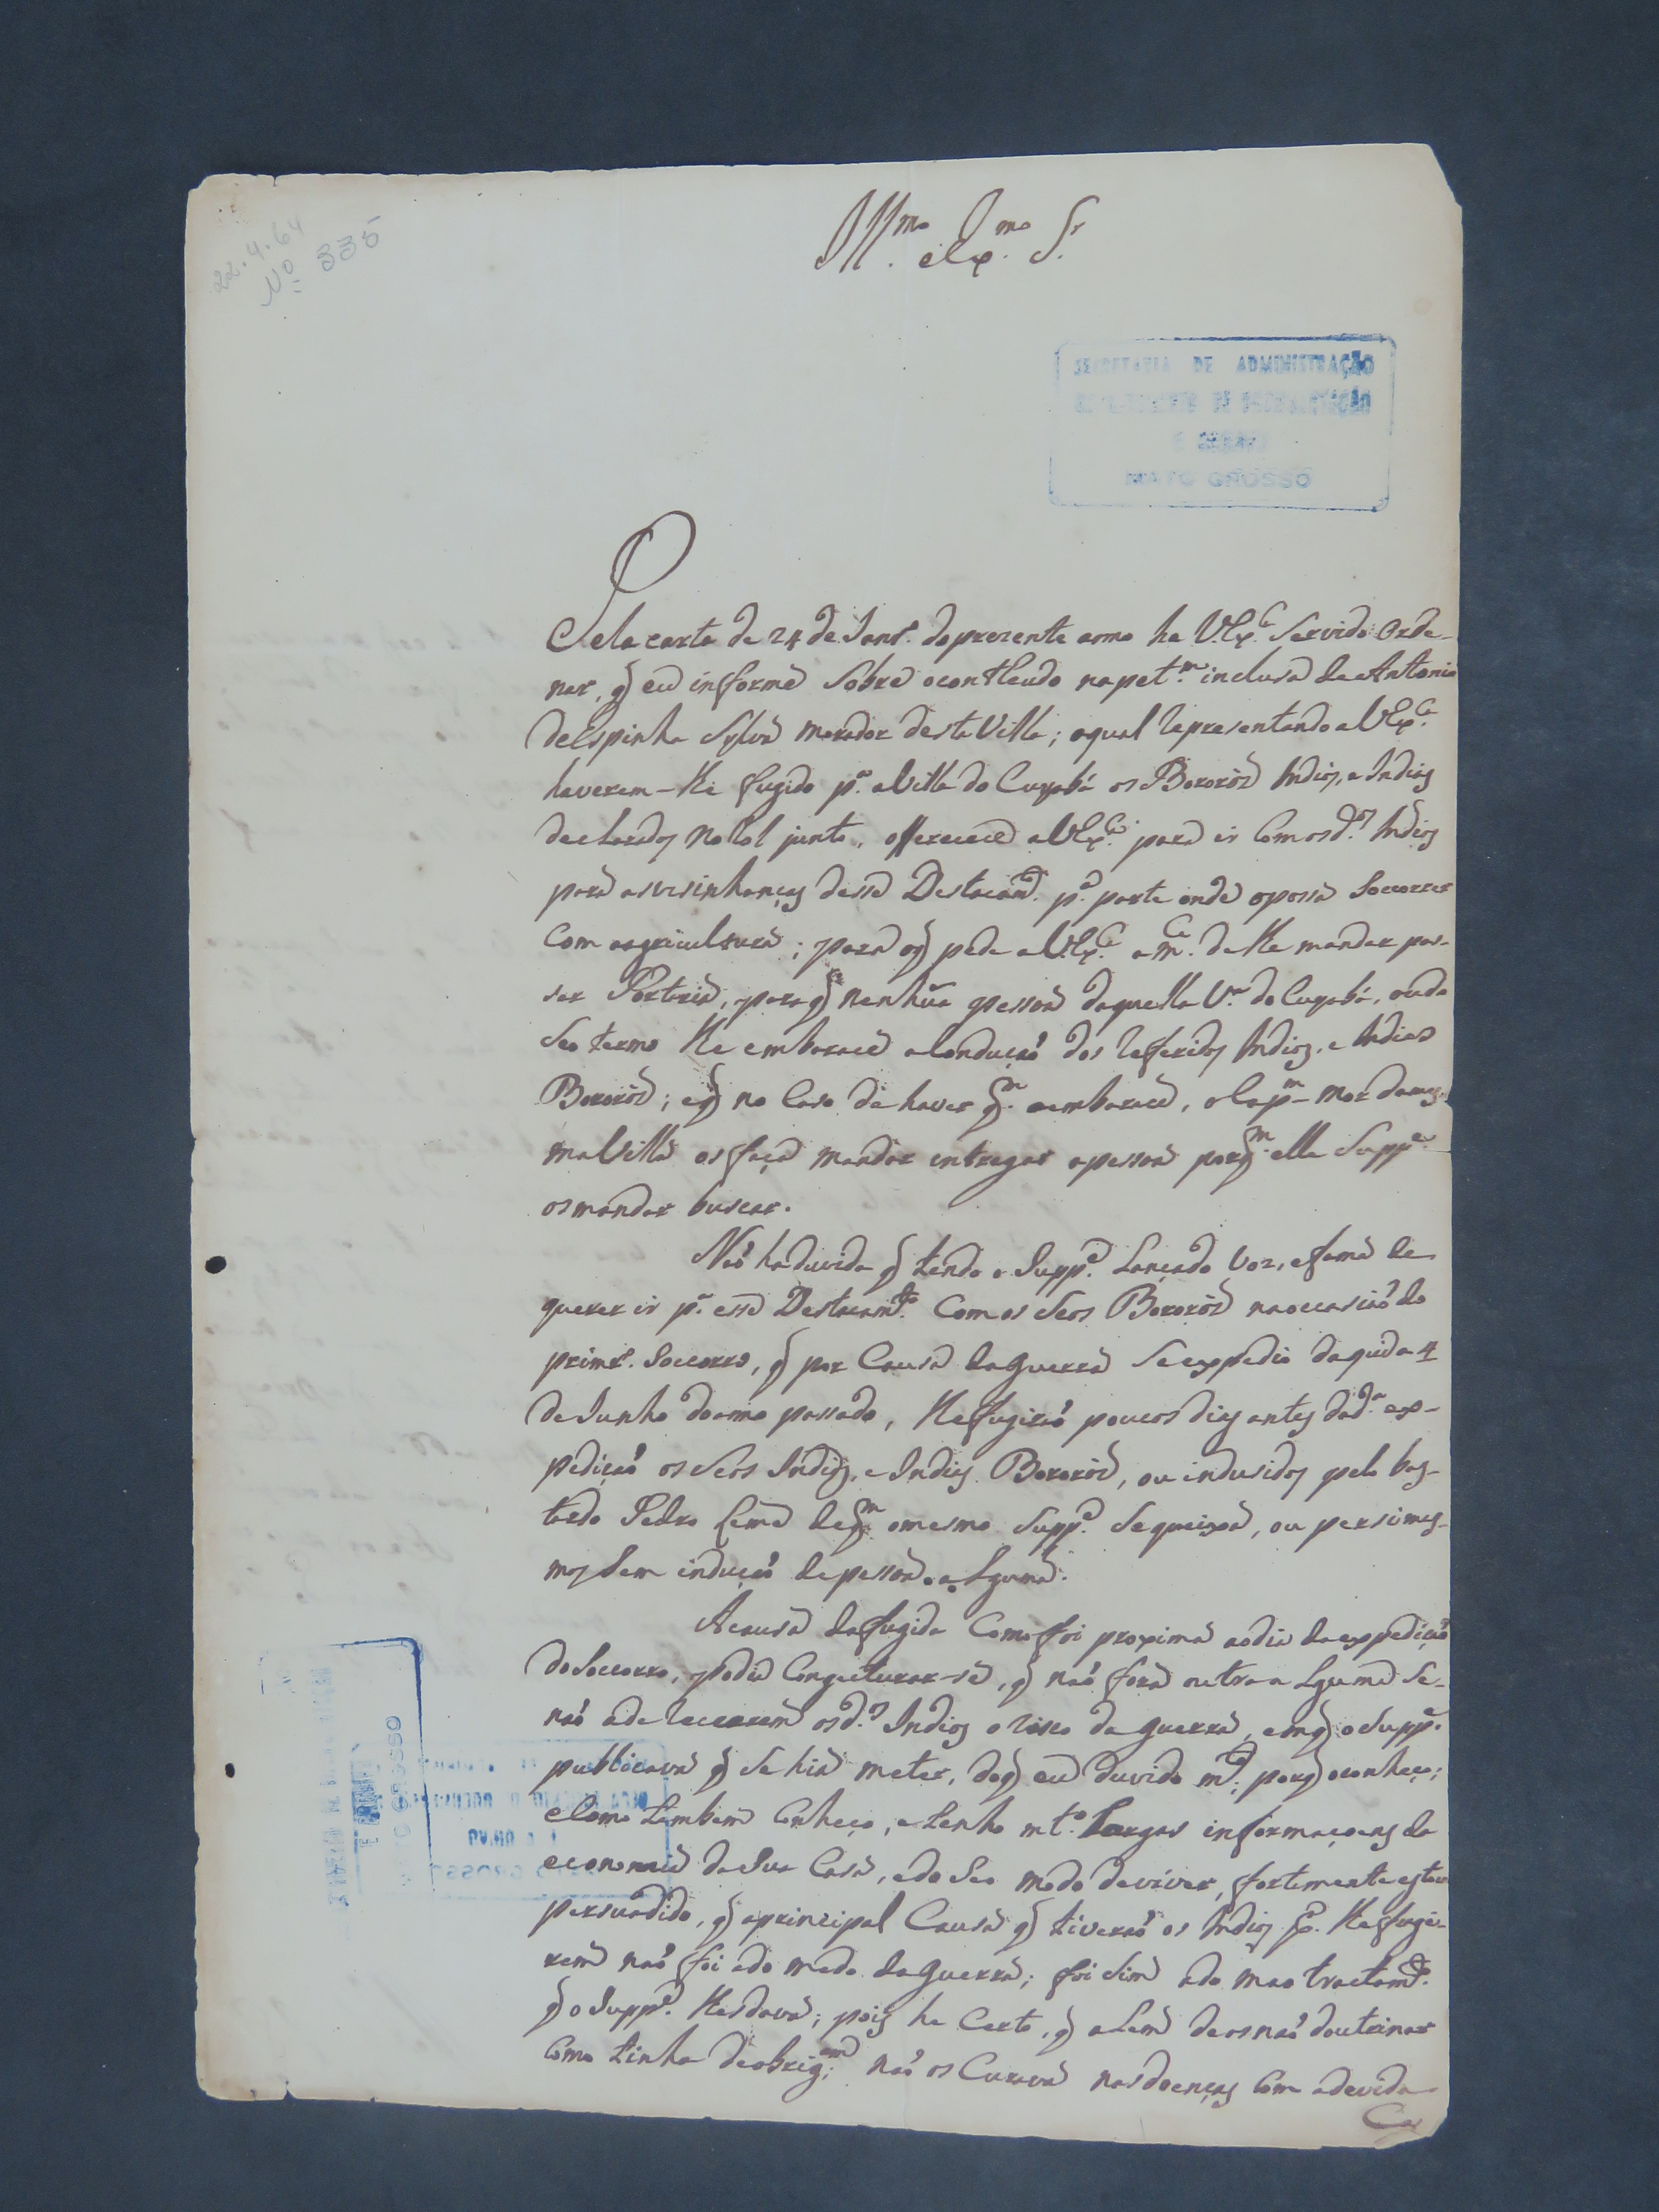 22.9.64
Nº 335
Ill.mo e Ex.mo Sr.
SECRETARIA DE ADMINISTRAÇÃO
MATO GROSSO
Pela carta de 24 de Janr.º do prezente anno he V.Ex.ca Servido Orde-
nar, q̃ eu informe Sobre o contheudo na pet.m inclusa de Antonio
de Espinha Sylva morador desta Villa; o qual representando a V.Ex.ca
haverem-lhe fugido p.ª a Villa do Cuyabá os Bororós Indios, e Indias
declarados no Rol junto, offerece a V.Ex.ca para ir Com os d.os Indios
para as vesinhanças desse Destacam.to p.ª parte onde o possa Soccorrer
Com a agricultura; para o q̃ pede a V.Ex.ca a m.ce de lhe mandar pas-
sar Portaria, para q̃ nenhũa pessoa daquella V.ª do Cuyabá, ou do
Seo termo lhe embarace a Conduçaõ dos referidos Indios, e Indias
Bororós; e q̃ no Caso de haver q.m o embarace, o Cap.m Mor da mes-
ma Villa os faça mandar entregar a pessoa por q.m elle Supp.e
os mandar buscar.
Naõ ha duvida q̃ tendo o Supp.e Lançado voz, e fama de
querer ir p.ª esse Destacam.to Com os Seos Bororós na occasiaõ do
primr.º Soccorro, q̃ por Causa da Guerra Se expedio daqui a 4
de Junho do anno passado, lhe fugiraõ poucos dias antes da d.ª ex-
pediçaõ os Seos Indios, e Indias Bororós, ou indusidos pelo bas-
tardo Pedro Leme de q.m o mesmo Supp.e Se queixa, ou por si mes-
mos Sem induçaõ de pessoa alguma.
A causa da fugida Como foi proxima ao dia da expediçaõ
do Soccorro, podia Congecturar-se, q̃ naõ fora outra alguma Se-
naõ a de recearem os d.os Indios o risco da Guerra, em q̃ o Supp.e
publicava q̃ Se hia meter, do q̃ eu duvido m.to; porq̃ o conheço;
e Como tambem Conheço, e tenho m.tº Largas informaçoens da
economia da Sua Casa, e do Seo modo de viver, fortemente estou
persuadido, q̃ a principal Causa q̃ tiveraõ os Indios p.ª lhe fugi-
rem naõ foi a do medo da Guerra; foi sim a do mao tractam.to
q̃ o Supp.e lhes dava; pois he Certo, q̃ alem de os naõ doutrinar
Como tinha de obrig.am naõ os Curava nas doenças Com a devida
Ca
MATO GROSSO